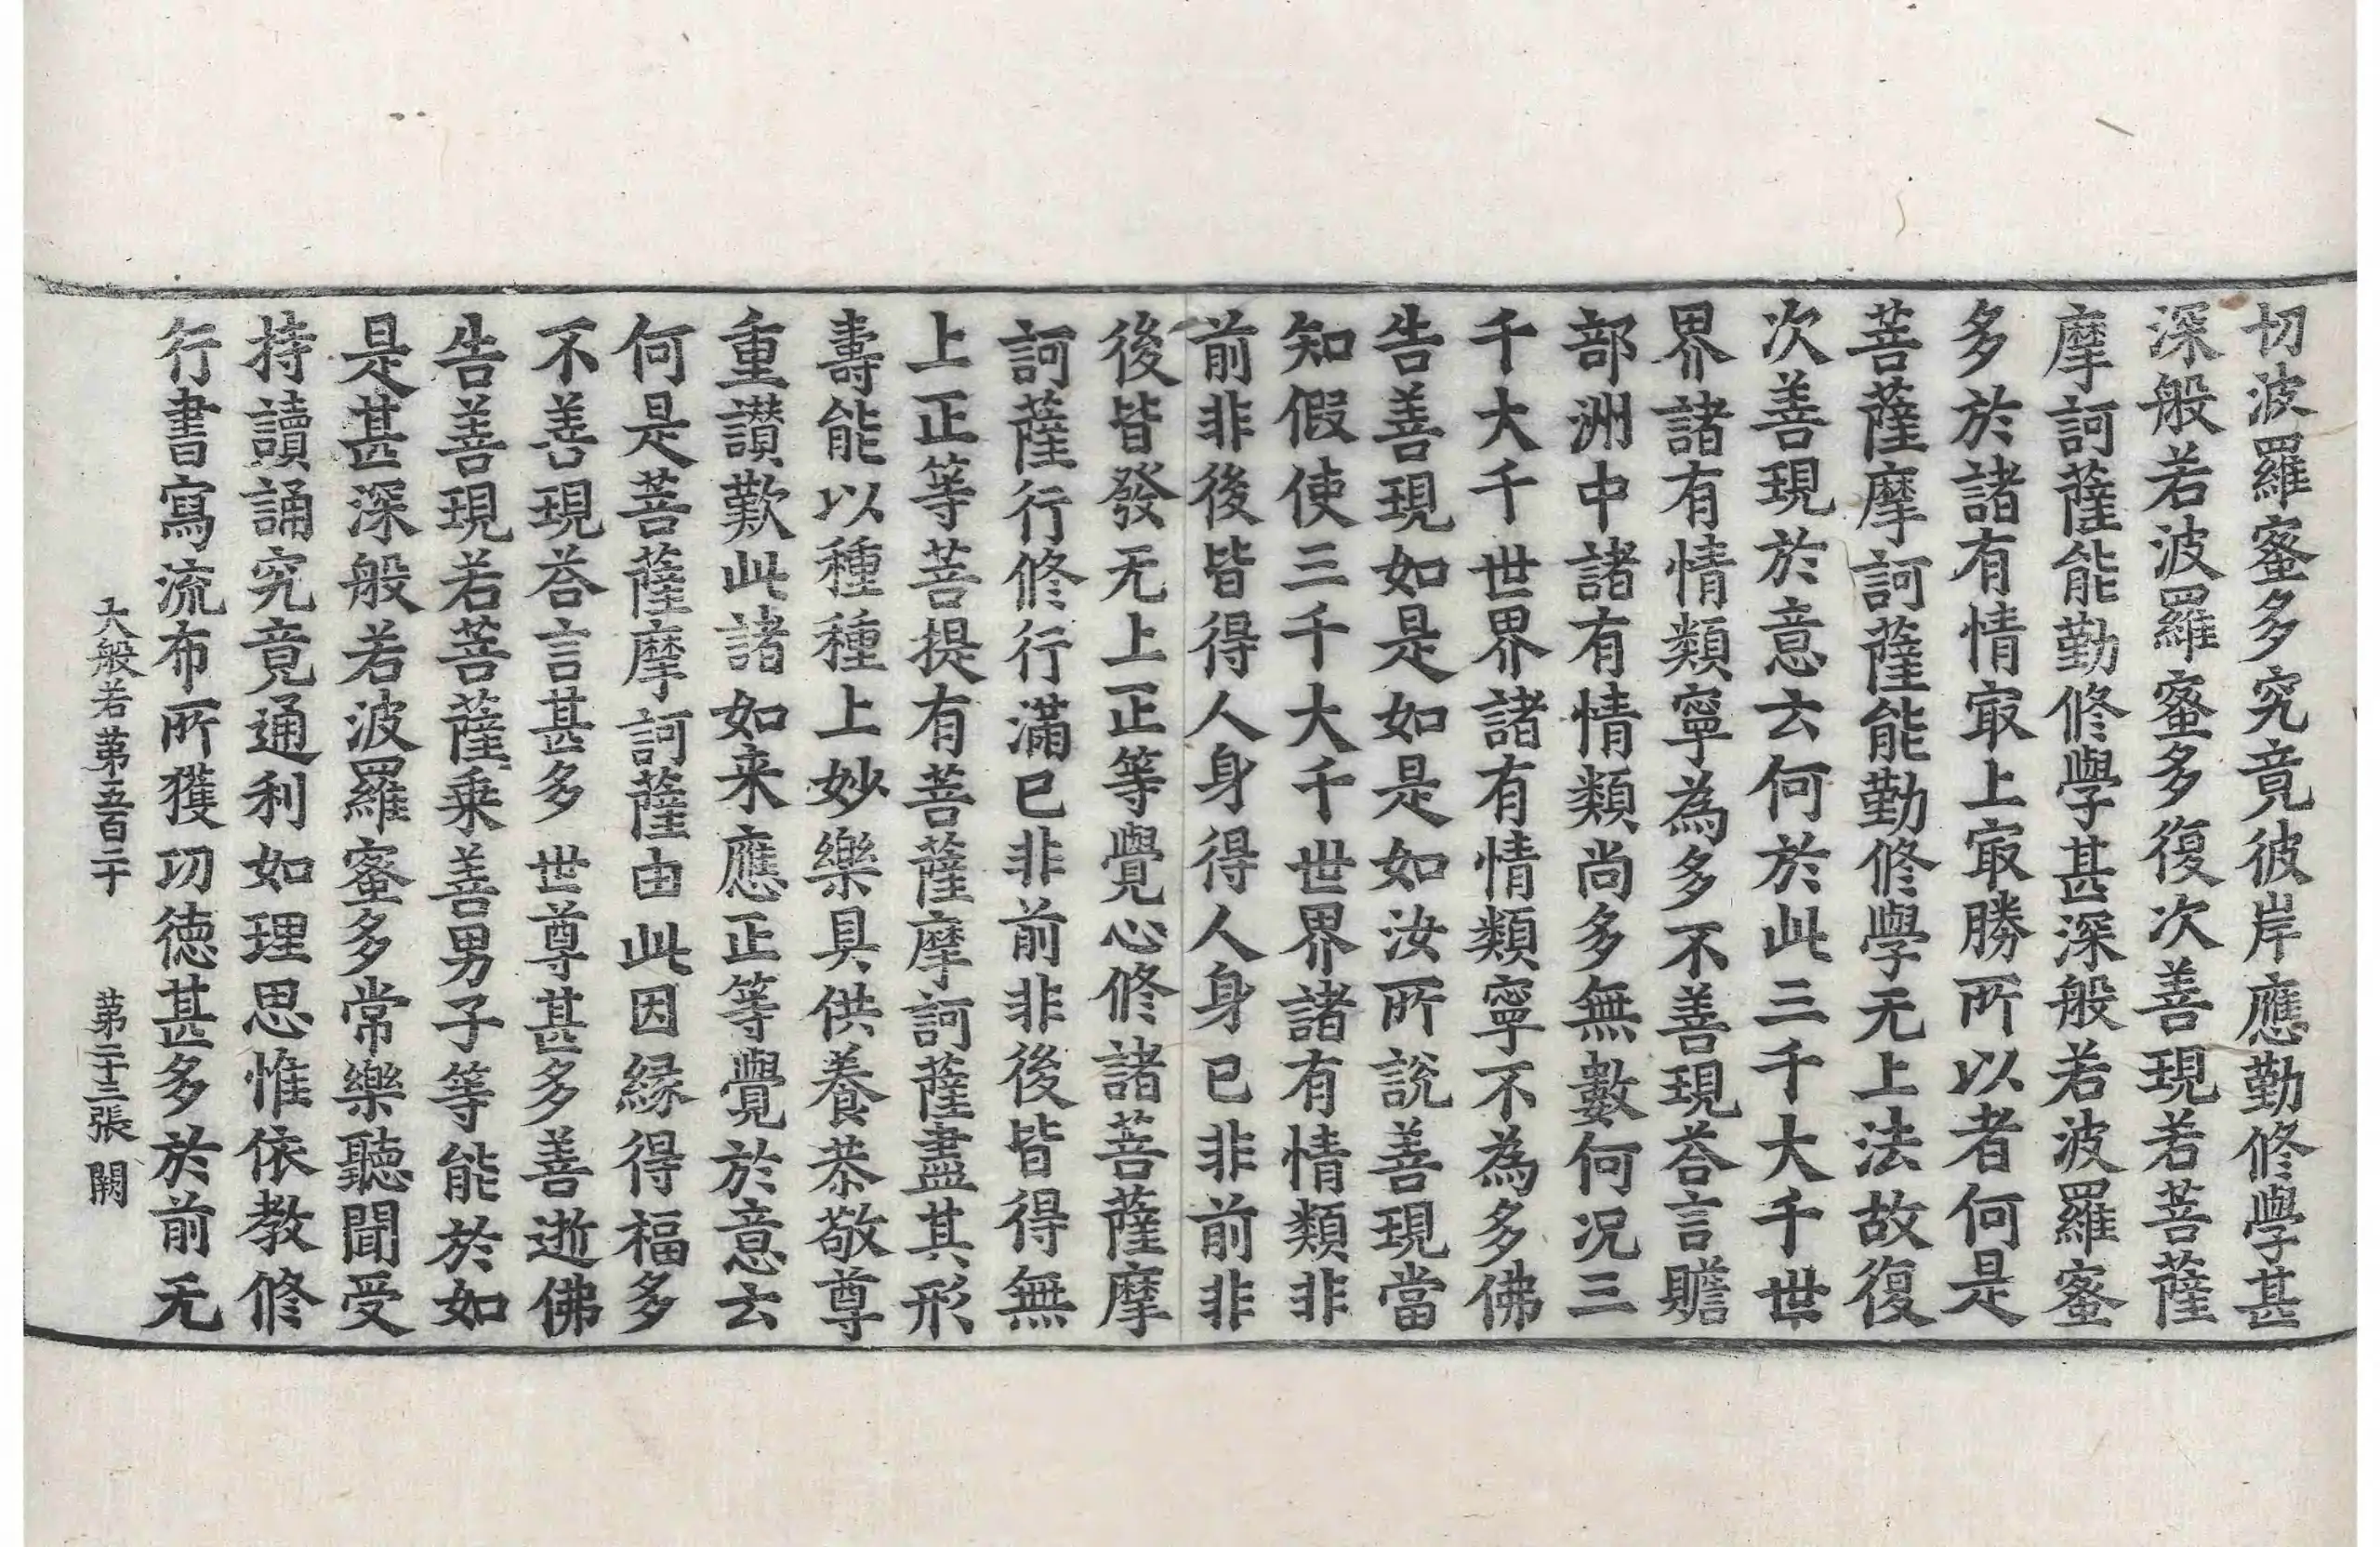 切波羅蜜多究竟彼岸應勤修學甚
深般若波羅蜜多復次善現若菩薩
摩訶薩能勤修學甚深般若波羅蜜
多於諸有情㝡上㝡勝所以者何是
菩薩摩訶薩能勤修學无上法故復
次善現於意云何於此三千大千世
界諸有情類寧為多不善現荅言贍
部洲中諸有情類尚多無數何况三
千大千世界諸有情類寧不為多佛
告善現如是如是如汝所說善現當
知假使三千大千世界諸有情類非
前非後皆得人身得人身已非前非
後皆發无上正等覺心修諸菩薩摩
訶薩行修行滿已非前非後皆得無
上正等菩提有菩薩摩訶薩盡其形
壽能以種種上妙樂具供養恭敬尊
重讃歎此諸如来應正等覺於意云
何是菩薩摩訶薩由此因緣得福多
不善現荅言甚多世尊甚多善逝佛
告善現若菩薩乗善男子等能於如
是甚深般若波羅蜜多常樂聽聞受
持讀誦究竟通利如理思惟依教修
行書寫流布所獲功徳甚多於前无
大般若第五百二十　第二十三張　闕